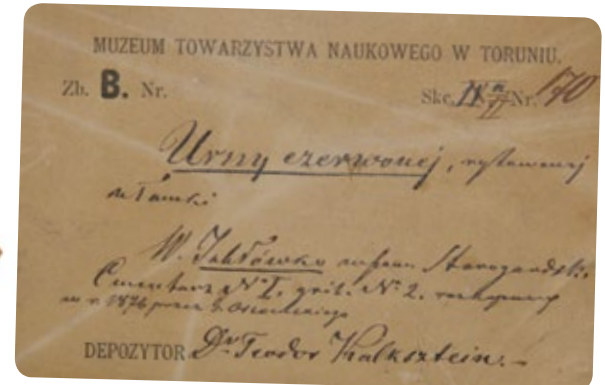 MUZEUM TOWARZYSTWA NAUKOWEGO W TORUNIU.
Zb. B. Nr. Skc. Nr. 170
Urny czerwonej, rysowanej
ułamki
W. Jabłówko Starogardzki.
Cmentarz No I. grób. No 2. rozkopany
w r. 1876 przez G. Ossowskiego
DEPOZYTOR Dr. Teodor Kalksztein.